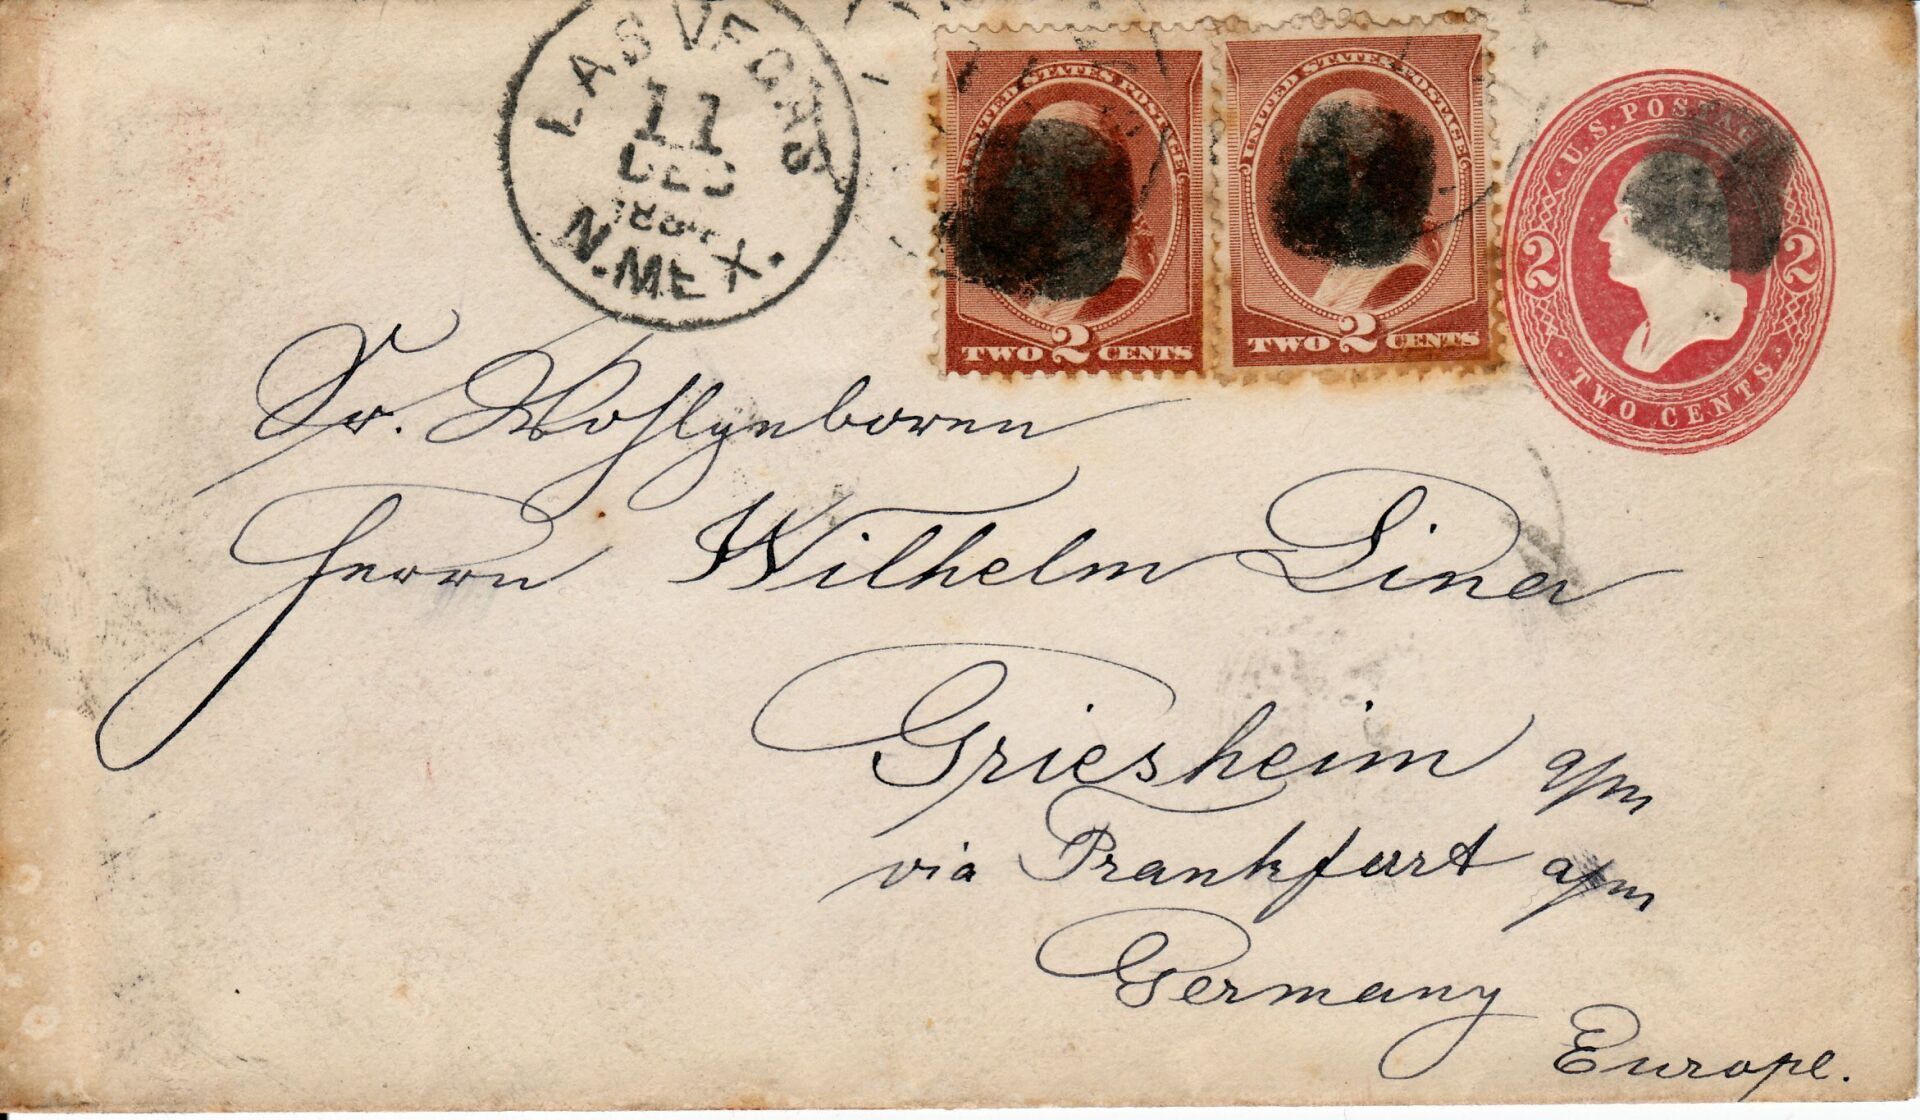 LAS VEGAS
11
DEC
1884
N. MEX.
UNITED STATES POSTAGE
TWO 2 CENTS
UNITED STATES POSTAGE
TWO 2 CENTS
U.S. POSTAGE
2 2
TWO CENTS.
Sr. Wohlgeboren
Herrn Wilhelm Liner
Griesheim a/m
via Frankfurt a/m
Germany
Europe.